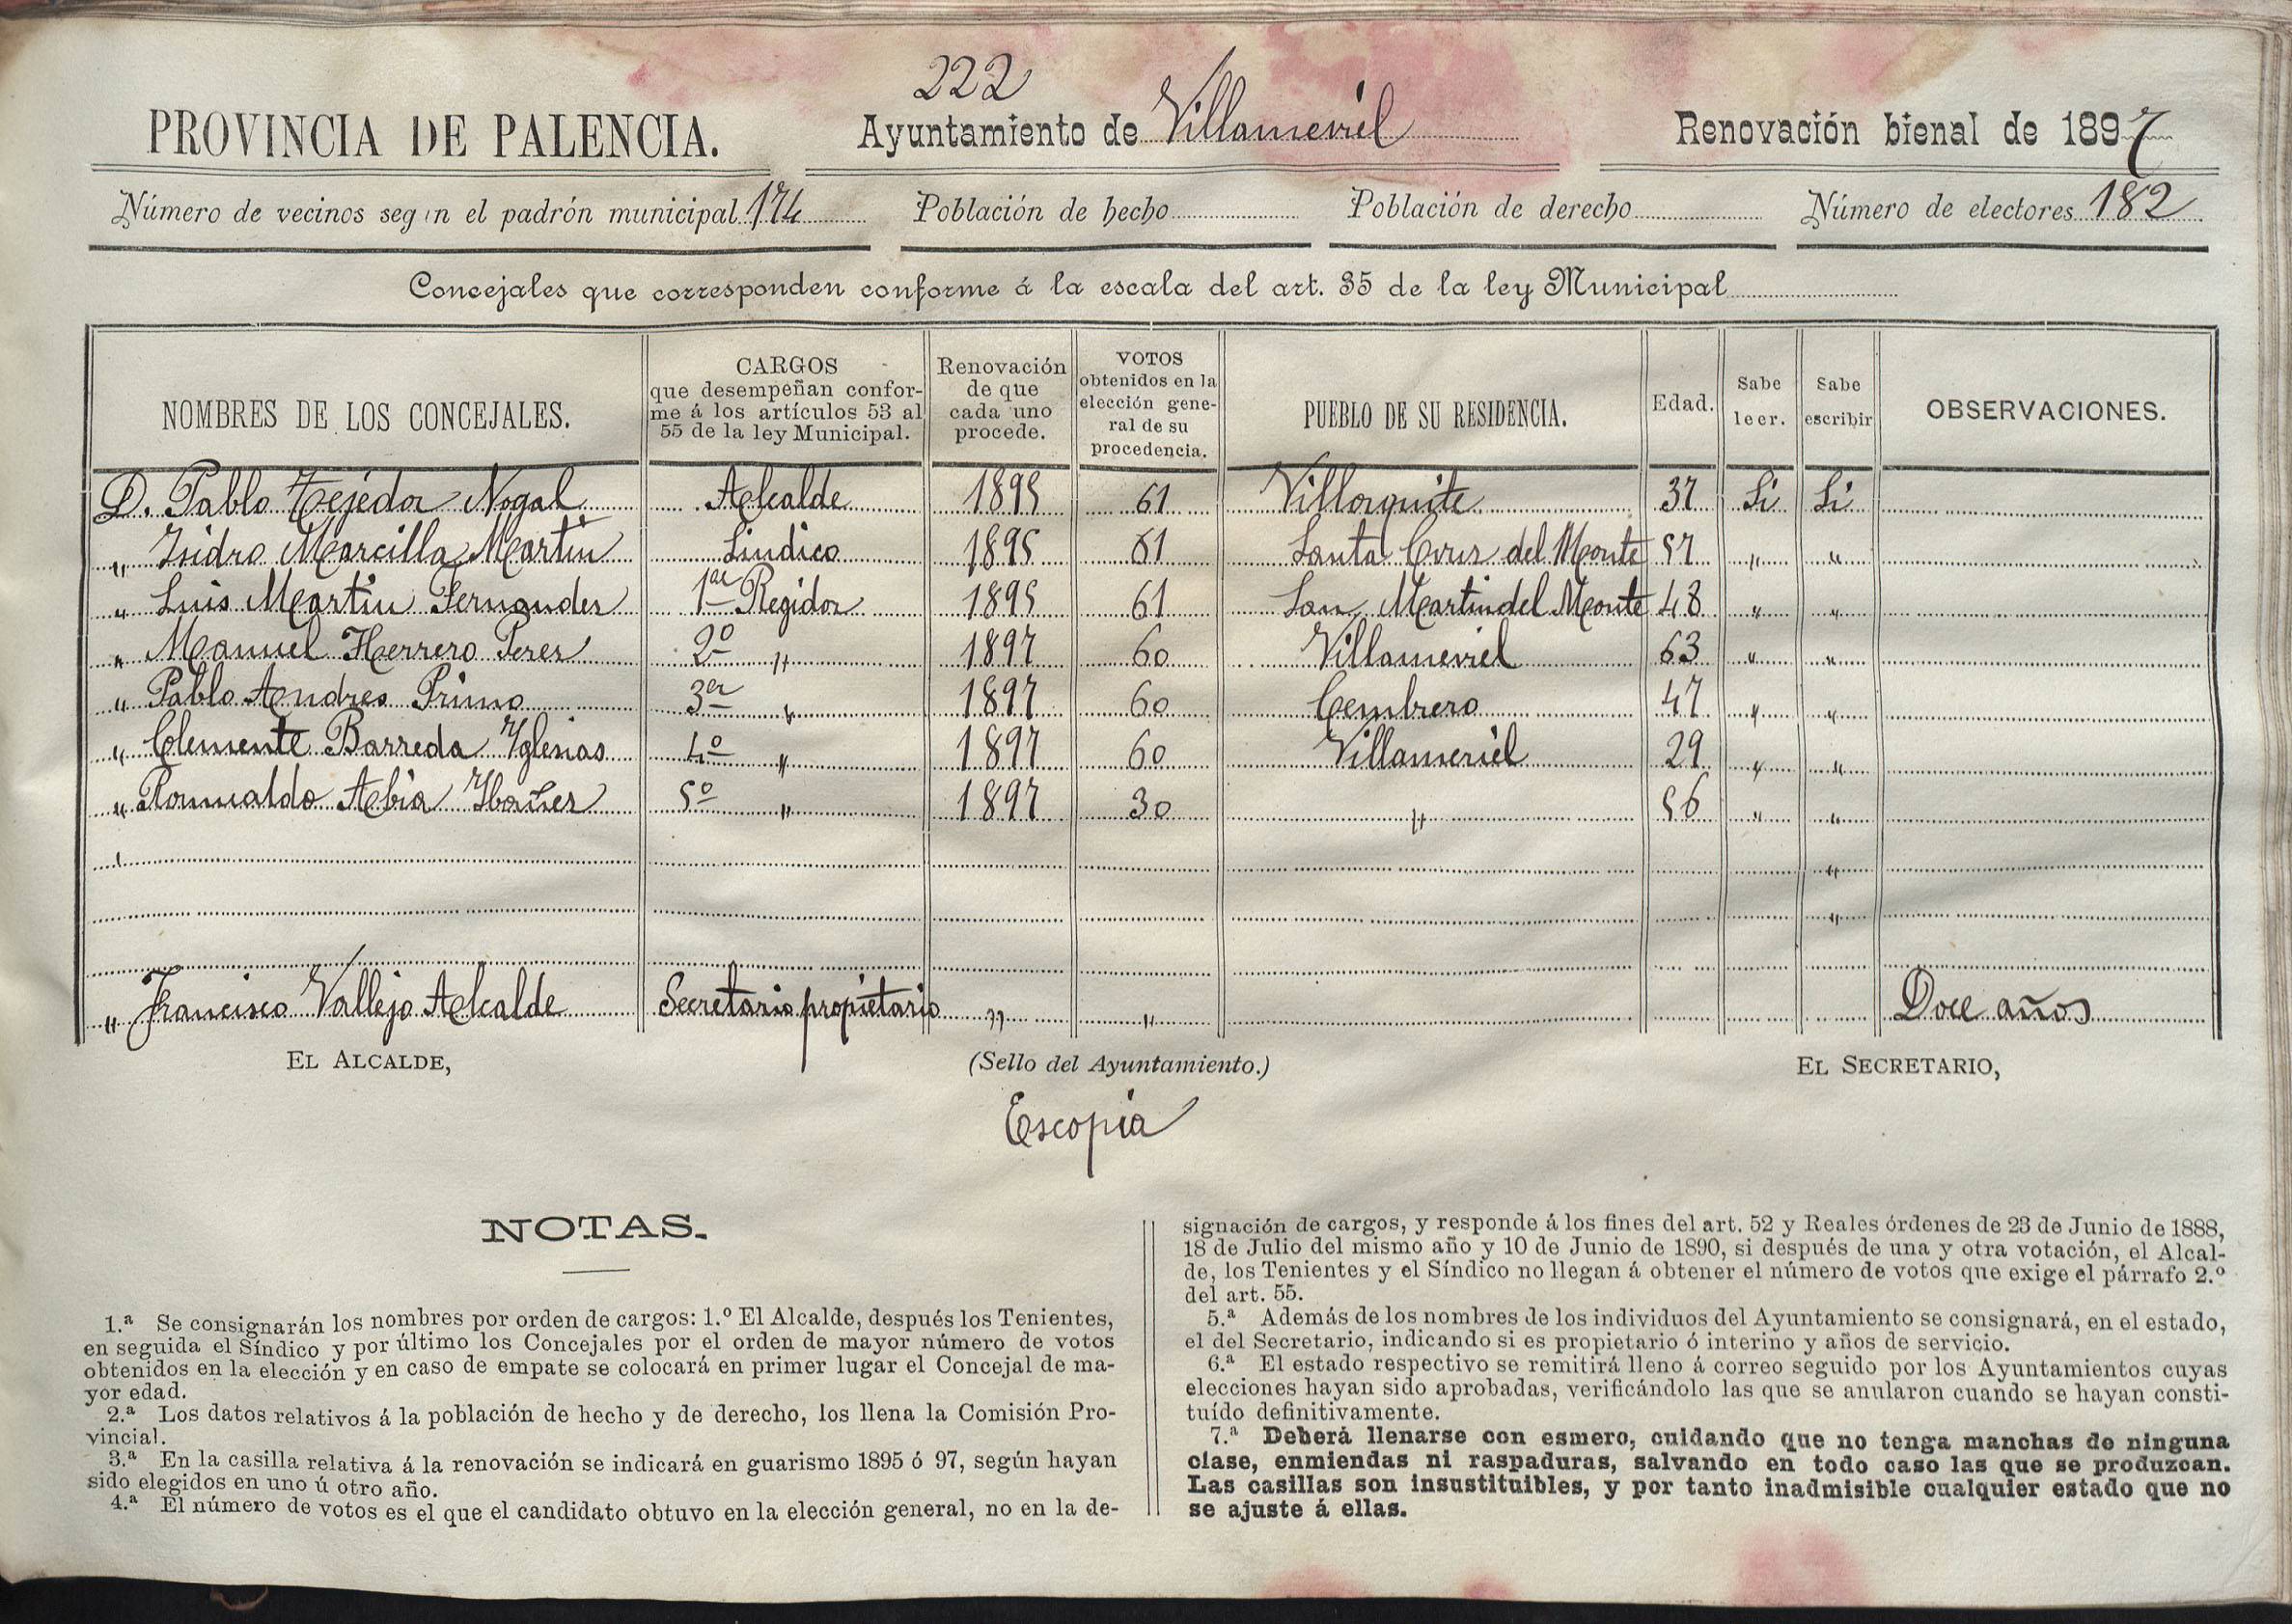 222
PROVINCIA DE PALENCIA. Ayuntamiento de Villameriel Renovación bienal de 1897
Número de vecinos según el padrón municipal 174 Población de hecho Población de derecho Número de electores 182
Concejales que corresponden conforme á la escala del art. 35 de la ley Municipal
NOMBRES DE LOS CONCEJALES. CARGOS que desempeñan conforme á los artículos 53 al 55 de la ley Municipal. Renovación de que cada uno procede. VOTOS obtenidos en la elección general de su procedencia. PUEBLO DE SU RESIDENCIA. Edad. Sabe leer. Sabe escribir OBSERVACIONES.
D. Pablo Tejedor Nogal Alcalde 1895 61 Villorquite 37 Si Si
" Isidro Marcilla Martin Sindico 1895 61 Santa Cruz del Monte 57 " "
" Luis Martin Fernandez 1er Regidor 1895 61 San Martin del Monte 48 " "
" Manuel Herrero Perez 2º " 1897 60 Villameriel 63 " "
" Pablo Andres Primo 3er " 1897 60 Cembrero 47 " "
" Clemente Barreda Yglesias 4º " 1897 60 Villameriel 29 " "
" Romualdo Abia Ybañez 5º " 1897 30 " 56 " "
"
"
" Francisco Vallejo Alcalde Secretario propietario " " Doce años
EL ALCALDE, (Sello del Ayuntamiento.) EL SECRETARIO,
Escopia
NOTAS.
1.ª Se consignarán los nombres por orden de cargos: 1.º El Alcalde, después los Tenientes,
en seguida el Síndico y por último los Concejales por el orden de mayor número de votos
obtenidos en la elección y en caso de empate se colocará en primer lugar el Concejal de ma-
yor edad.
2.ª Los datos relativos á la población de hecho y de derecho, los llena la Comisión Pro-
vincial.
3.ª En la casilla relativa á la renovación se indicará en guarismo 1895 ó 97, según hayan
sido elegidos en uno ú otro año.
4.ª El número de votos es el que el candidato obtuvo en la elección general, no en la de-
signación de cargos, y responde á los fines del art. 52 y Reales órdenes de 23 de Junio de 1888,
18 de Julio del mismo año y 10 de Junio de 1890, si después de una y otra votación, el Alcal-
de, los Tenientes y el Síndico no llegan á obtener el número de votos que exige el párrafo 2.º
del art. 55.
5.ª Además de los nombres de los individuos del Ayuntamiento se consignará, en el estado,
el del Secretario, indicando si es propietario ó interino y años de servicio.
6.ª El estado respectivo se remitirá lleno á correo seguido por los Ayuntamientos cuyas
elecciones hayan sido aprobadas, verificándolo las que se anularon cuando se hayan consti-
tuído definitivamente.
7.ª Deberá llenarse con esmero, cuidando que no tenga manchas de ninguna
clase, enmiendas ni raspaduras, salvando en todo caso las que se produzcan.
Las casillas son insustituibles, y por tanto inadmisible cualquier estado que no
se ajuste á ellas.